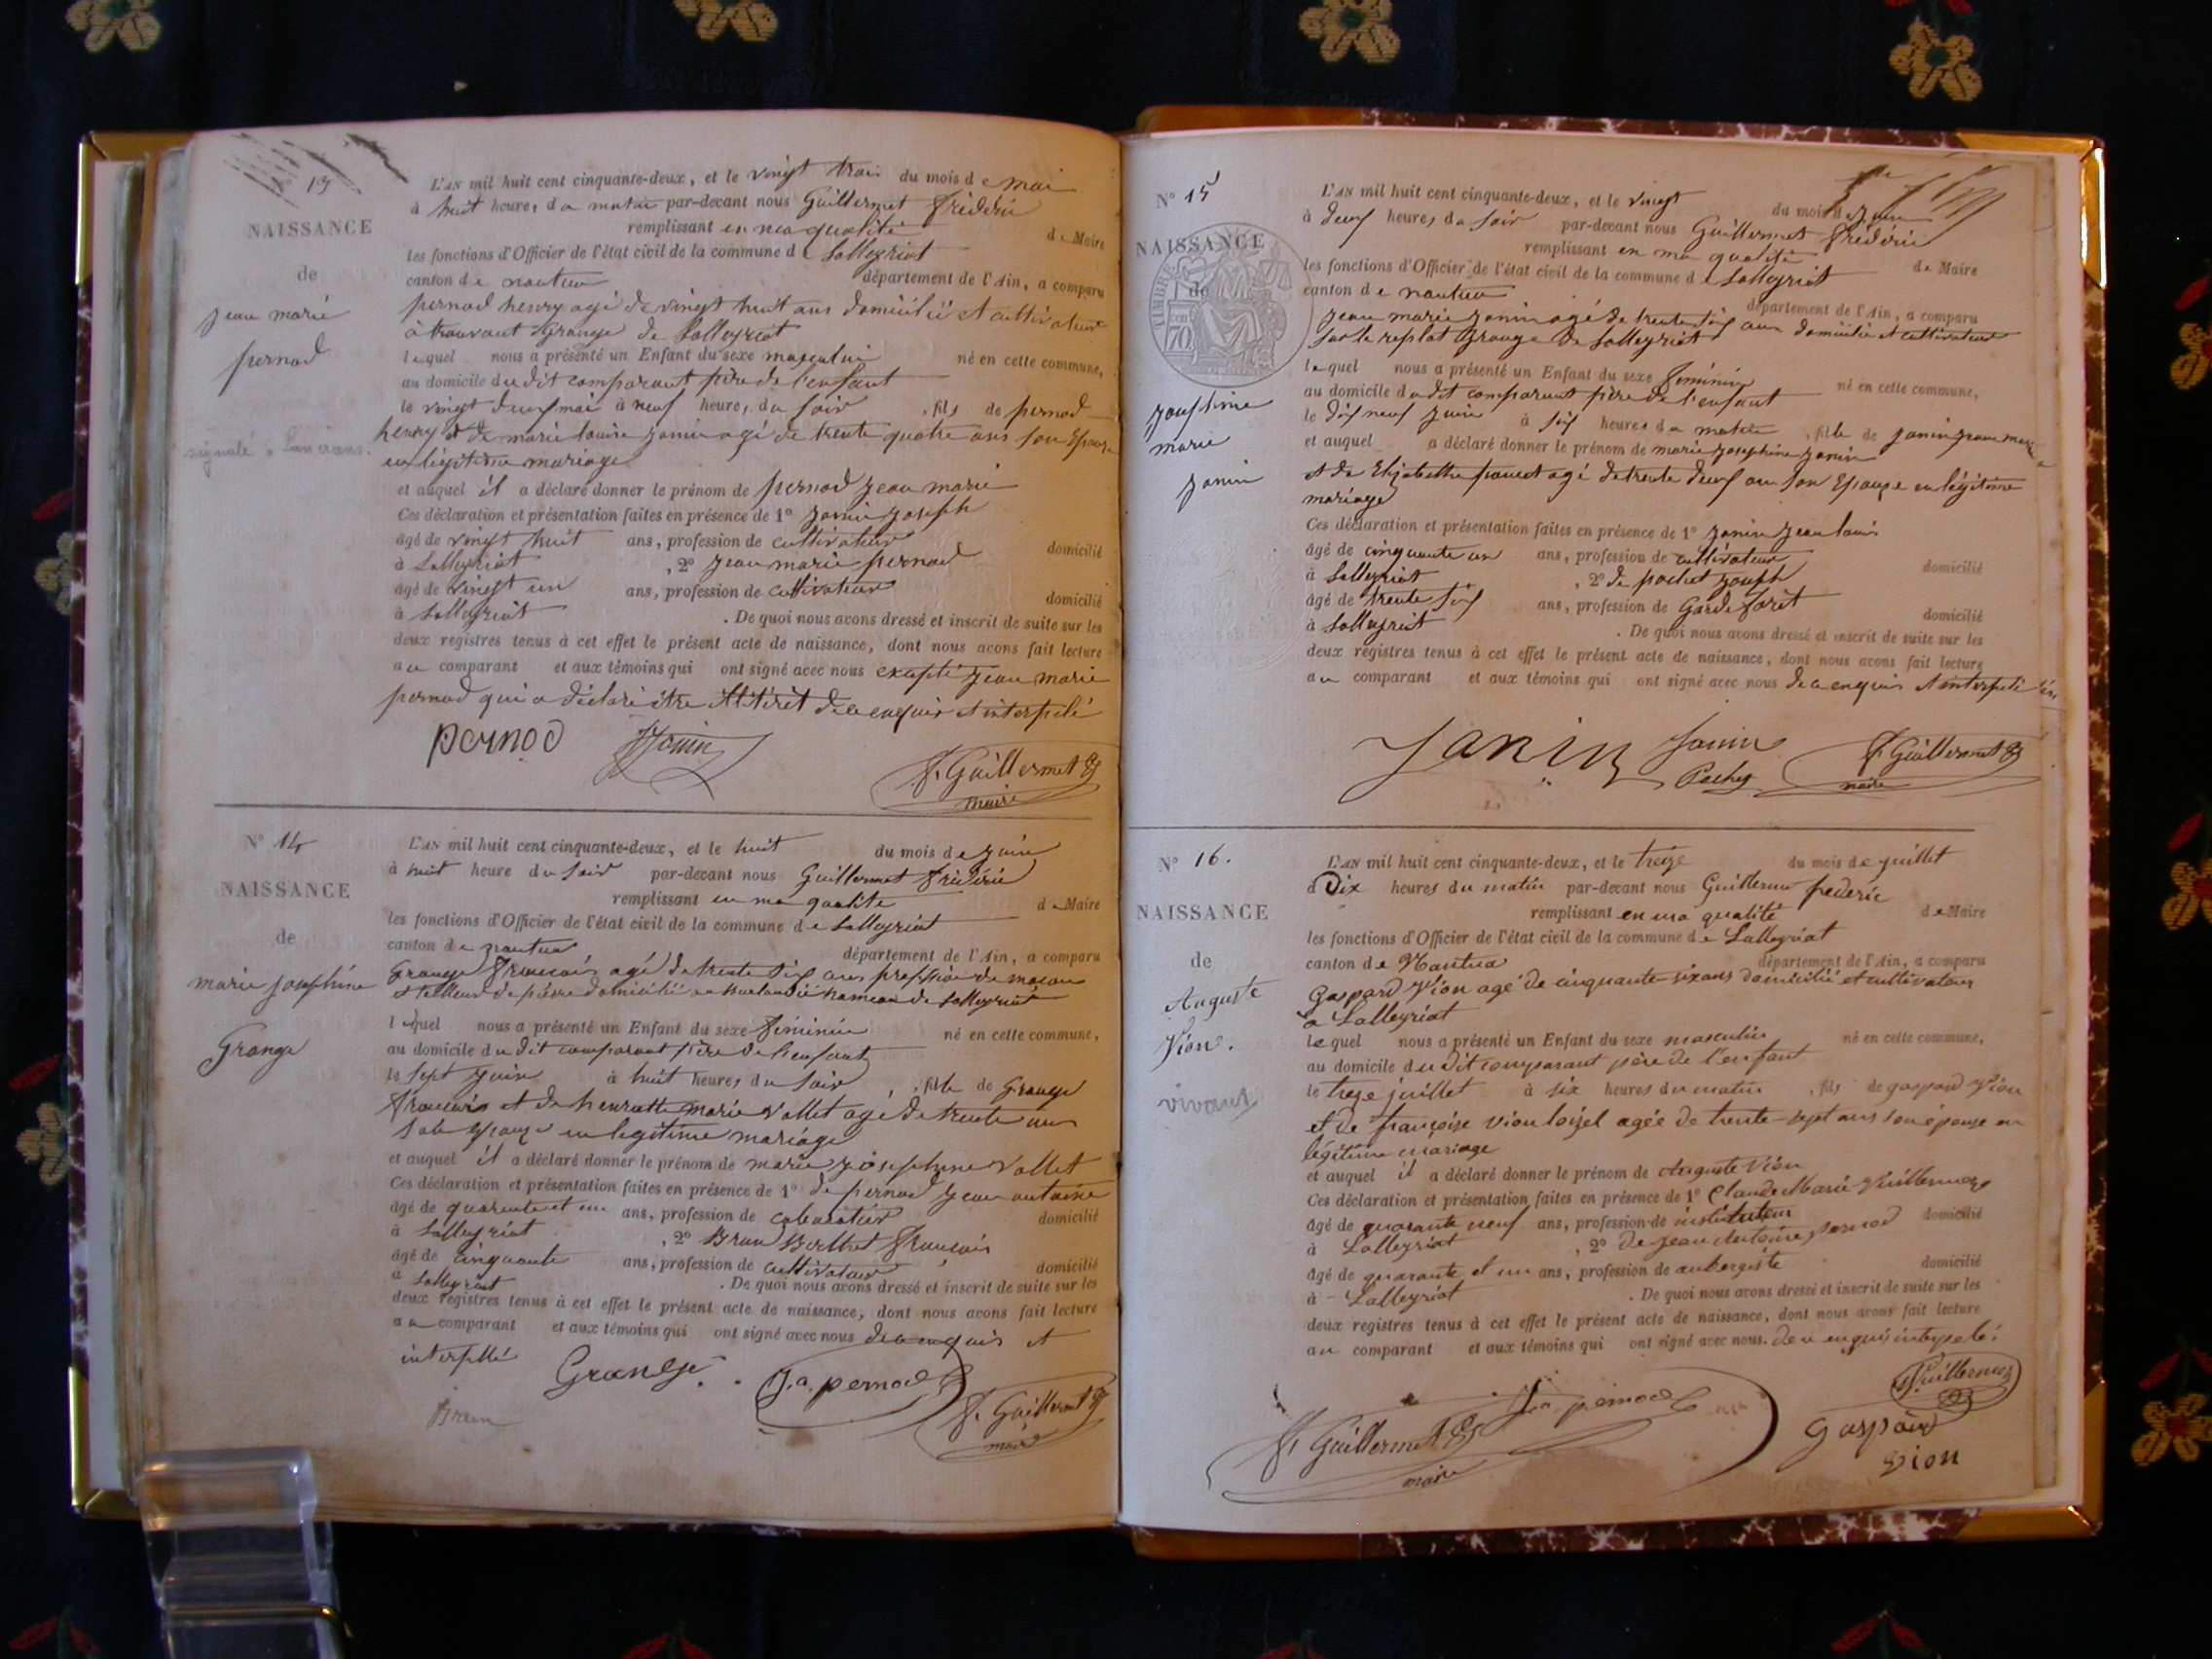 13
NAISSANCE
de
jean marie
pernod
signalé à Lancrans.
L'AN mil huit cent cinquante-deux, et le vingt trois du mois de mai
à huit heures du matin par-devant nous Guillermet frédéric
remplissant en ma qualité de Maire
les fonctions d'Officier de l'état civil de la commune de Lalleyriat
canton de nantua département de l'Ain, a comparu
pernod henry agé de vingt huit ans domicilié et cultivateur
à trouvant Grange de Lalleyriat
lequel nous a présenté un Enfant du sexe masculin né en cette commune,
au domicile du dit comparant père de l'enfant
le vingt deux mai à neuf heures du soir, fils de pernod
henry et de marie louise janin agé de trente quatre ans son Epouse
en légitime mariage
et auquel il a déclaré donner le prénom de pernod jean marie
Ces déclaration et présentation faites en présence de 1° janin joseph
âgé de vingt huit ans, profession de cultivateur domicilié
à Lalleyriat, 2° jean marie pernod
âgé de vingt un ans, profession de cultivateur domicilié
à Lalleyriat. De quoi nous avons dressé et inscrit de suite sur les
deux registres tenus à cet effet le présent acte de naissance, dont nous avons fait lecture
au comparant et aux témoins qui ont signé avec nous excepté jean marie
pernod qui a déclaré être illitérêt de ce enquis et interpelé
pernod Janin F. Guillermet
maire
N° 14
NAISSANCE
de
marie josephine
Grange
L'AN mil huit cent cinquante-deux, et le huit du mois de juin
à huit heure du soir par-devant nous Guillermet frédéric
remplissant en ma qualité de Maire
les fonctions d'Officier de l'état civil de la commune de Lalleyriat
canton de nantua département de l'Ain, a comparu
Grange françois agé de trente six ans profession de maçon
et tailleur de pierre domicilié hameau de Lalleyriat
lequel nous a présenté un Enfant du sexe féminin né en cette commune,
au domicile du dit comparant père de l'enfant
le sept juin à huit heures du soir, fille de Grange
françois et de henriette marie vallet agé de trente un
son Epouze en legitime mariage
et auquel il a déclaré donner le prénom de marie josephine vallet
Ces déclaration et présentation faites en présence de 1° de pernod jean antoine
âgé de quarante et un ans, profession de cabaratier domicilié
à Lalleyriat, 2° Brun Berthet françois
âgé de cinquante ans, profession de cultivateur domicilié
à Lalleyriat. De quoi nous avons dressé et inscrit de suite sur les
deux registres tenus à cet effet le présent acte de naissance, dont nous avons fait lecture
au comparant et aux témoins qui ont signé avec nous de ce enquis et
interpellé
Grange. J. a. pernod
Brun F. Guillermet
maire
N° 15
NAISSANCE
de
TIMBRE
70
josephine
marie
janin
L'AN mil huit cent cinquante-deux, et le vingt du mois de juin
à deux heures du soir par-devant nous Guillermet frédéric
remplissant en ma qualité de Maire
les fonctions d'Officier de l'état civil de la commune de Lalleyriat
canton de nantua département de l'Ain, a comparu
jean marie janin agé de trente six ans domicilié et cultivateur
sur le replat Grange de Lalleyriat
lequel nous a présenté un Enfant du sexe féminin né en cette commune,
au domicile du dit comparant père de l'enfant
le dix neuf juin à six heures du matin, fille de janin jean marie
et auquel a déclaré donner le prénom de marie josephine janin
et de Elizabette agé de trente deux ans son Epouze en légitime
mariage
Ces déclaration et présentation faites en présence de 1° janin jean louis
âgé de cinquante un ans, profession de cultivateur domicilié
à Lalleyriat, 2° de pochet joseph
âgé de trente six ans, profession de Garde forêt domicilié
à Lalleyriat. De quoi nous avons dressé et inscrit de suite sur les
deux registres tenus à cet effet le présent acte de naissance, dont nous avons fait lecture
au comparant et aux témoins qui ont signé avec nous de ce enquis et interpelé
Janin Janin F. Guillermet
Pochet maire
N° 16.
NAISSANCE
de
Auguste
Vion.
vivant
L'AN mil huit cent cinquante-deux, et le treize du mois de juillet
à Dix heures du matin par-devant nous Guillermet frederic
remplissant en ma qualité de Maire
les fonctions d'Officier de l'état civil de la commune de Lalleyriat
canton de Nantua département de l'Ain, a comparu
Gaspard Vion agé de cinquante-six ans domicilié et cultivateur
à Lalleyriat
lequel nous a présenté un Enfant du sexe masculin né en cette commune,
au domicile du dit comparant père de l'enfant
le treize juillet à six heures du matin, fils de gaspard Vion
et de françoise vion loizel agée de trente-sept ans son épouse en
légitime mariage
et auquel il a déclaré donner le prénom de Auguste Vion
Ces déclaration et présentation faites en présence de 1° Claude Marie Vuillermoz
âgé de quarante neuf ans, profession de instituteur domicilié
à Lalleyriat, 2° de jean Antoine pernod
âgé de quarante et un ans, profession de aubergiste domicilié
à Lalleyriat. De quoi nous avons dressé et inscrit de suite sur les
deux registres tenus à cet effet le présent acte de naissance, dont nous avons fait lecture
au comparant et aux témoins qui ont signé avec nous. de ce enquis interpelé.
Vuillermoz
F. Guillermet J. a. pernod gaspard
maire vion